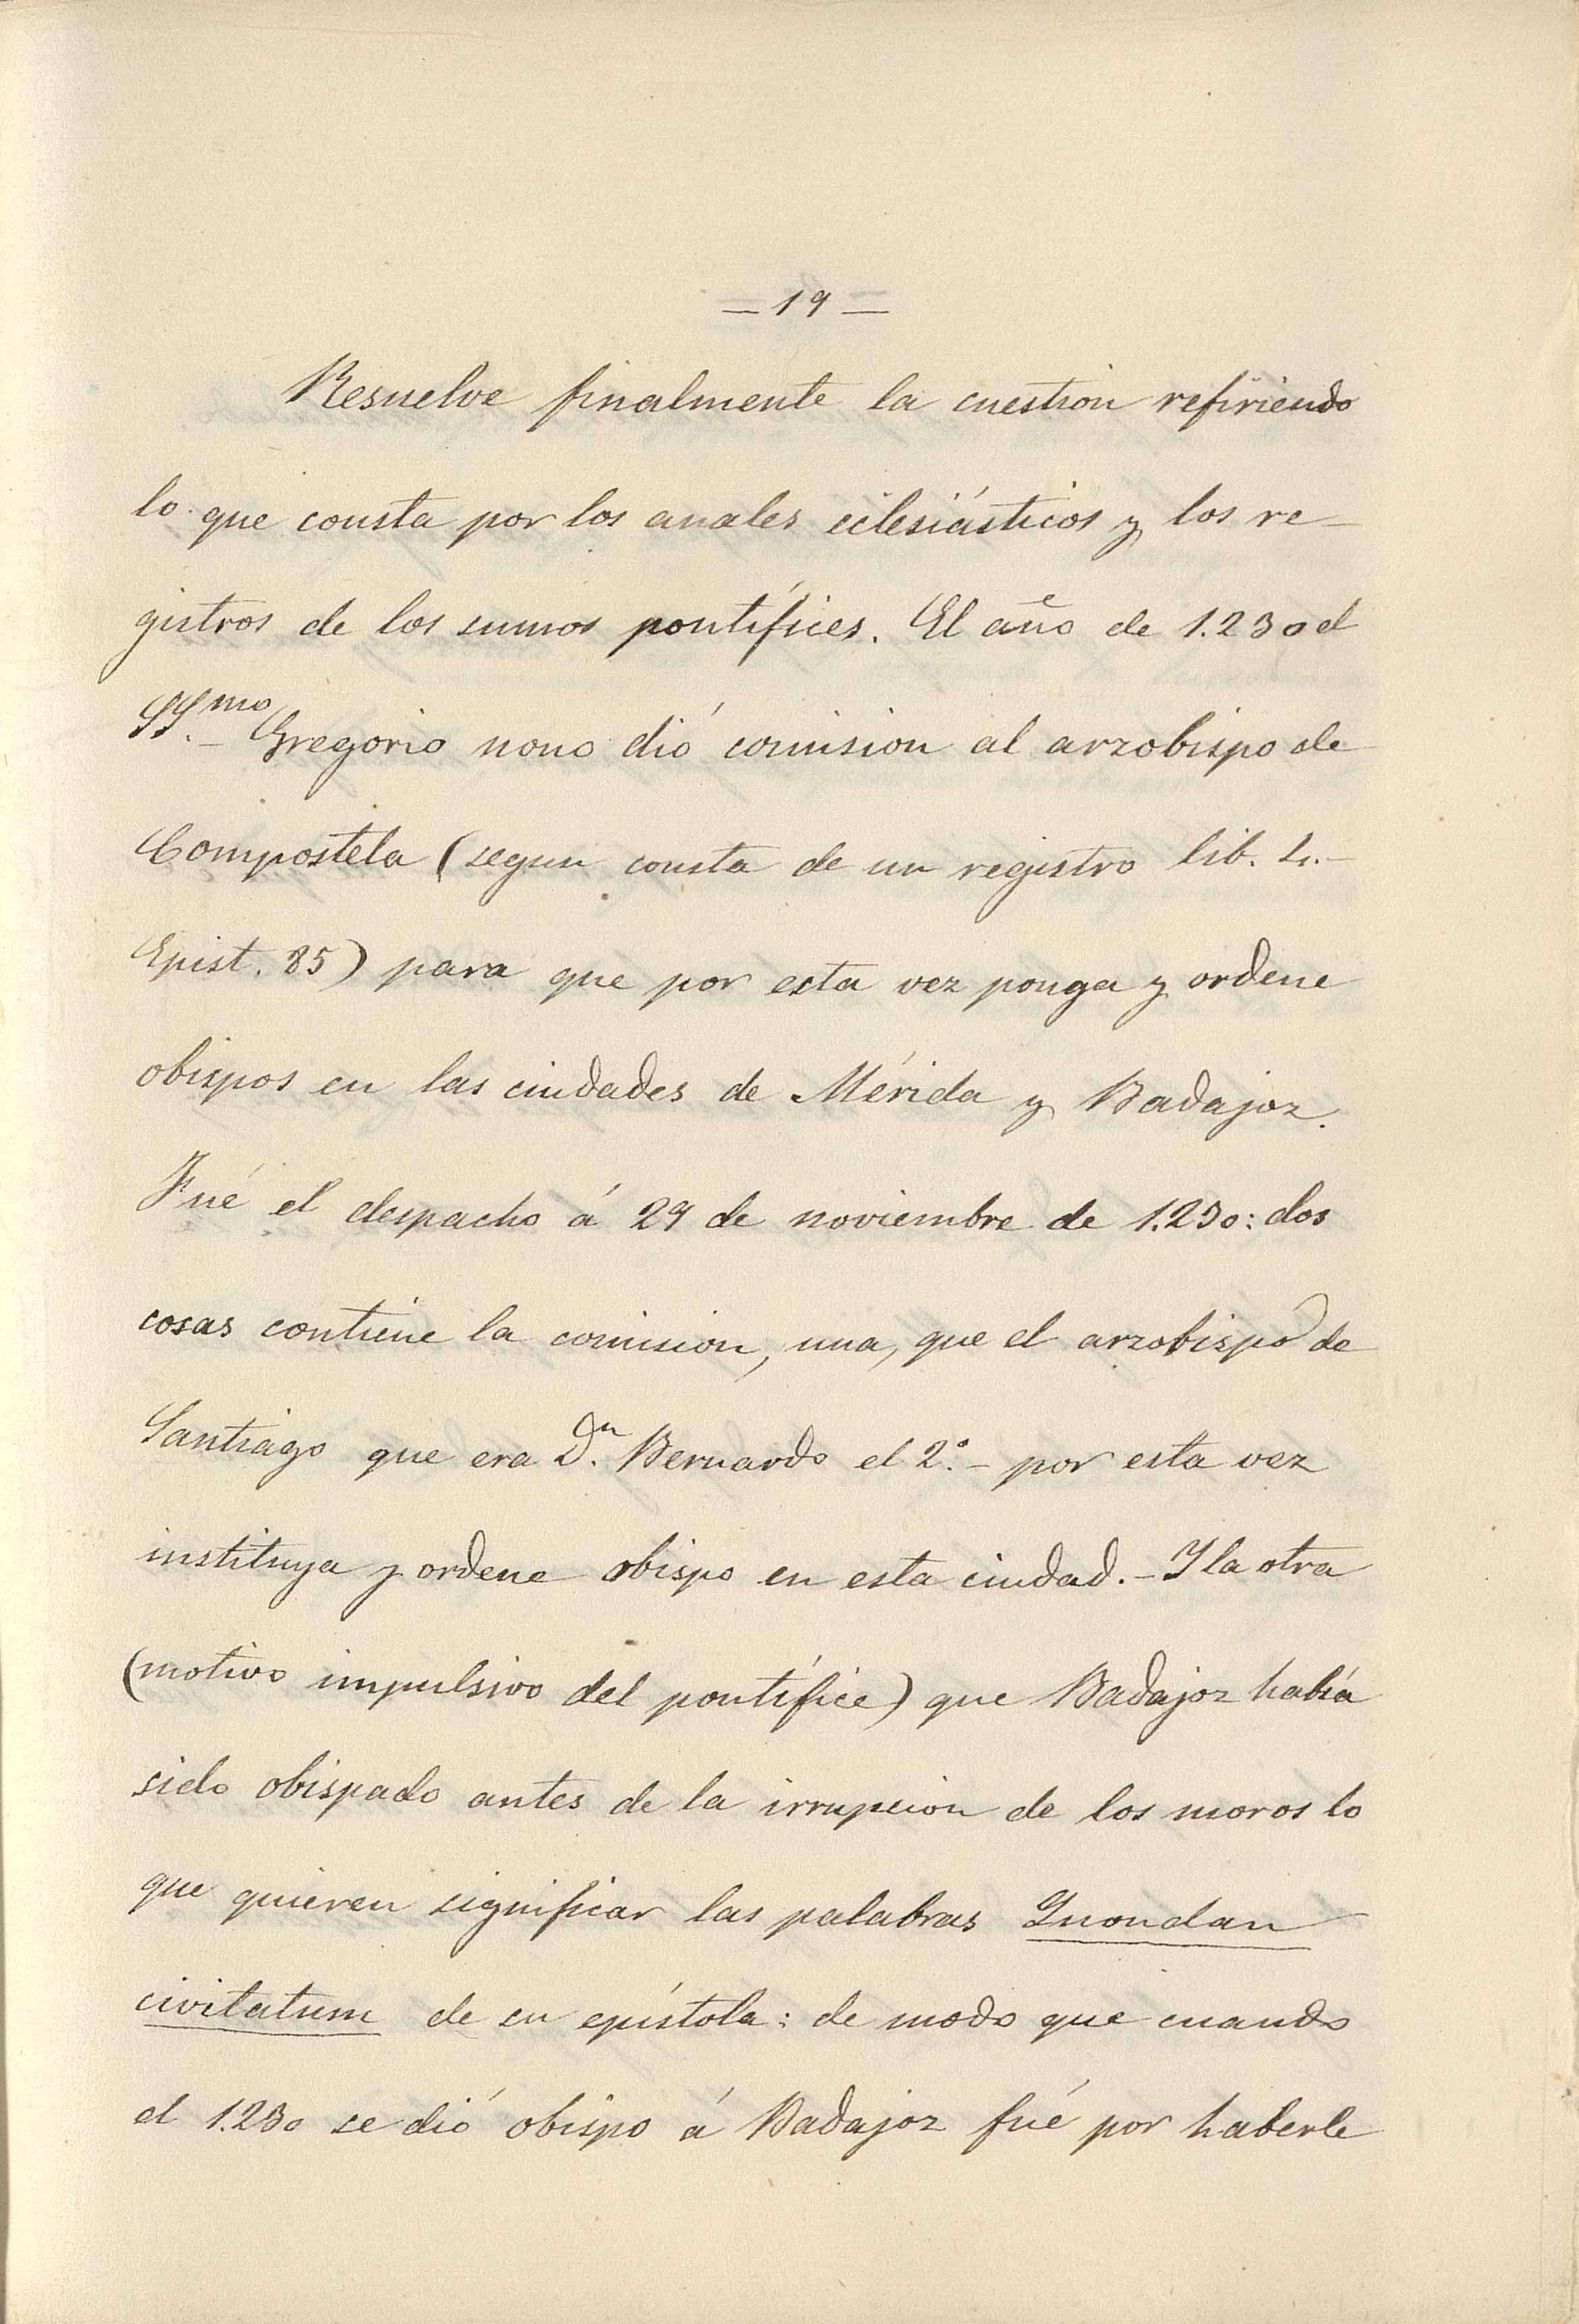 — 19 —
Resuelve finalmente la cuestion refiriendo
lo que consta por los anales eclesiásticos y los re-
gistros de los sumos pontífices. El año de 1.230 el
SS.mo Gregorio nono dió comision al arzobispo de
Compostela (segun consta de un registro lib. 4.-
Epist. 85) para que por esta vez ponga y ordene
obispos en las ciudades de Mérida y Badajoz.
Fué el despacho á 29 de noviembre de 1.230: dos
cosas contiene la comision, una, que el arzobispo de
Santiago que era Dn. Bernardo el 2º.- por esta vez
instituya y ordene obispo en esta ciudad.- Y la otra
(motivo impulsivo del pontífice) que Badajoz habia
sido obispado antes de la irrupcion de los moros lo
que quieren significar las palabras Inondan
civitatum de su epístola: de modo que cuando
el 1.230 se dió obispo á Badajoz fué por haberle